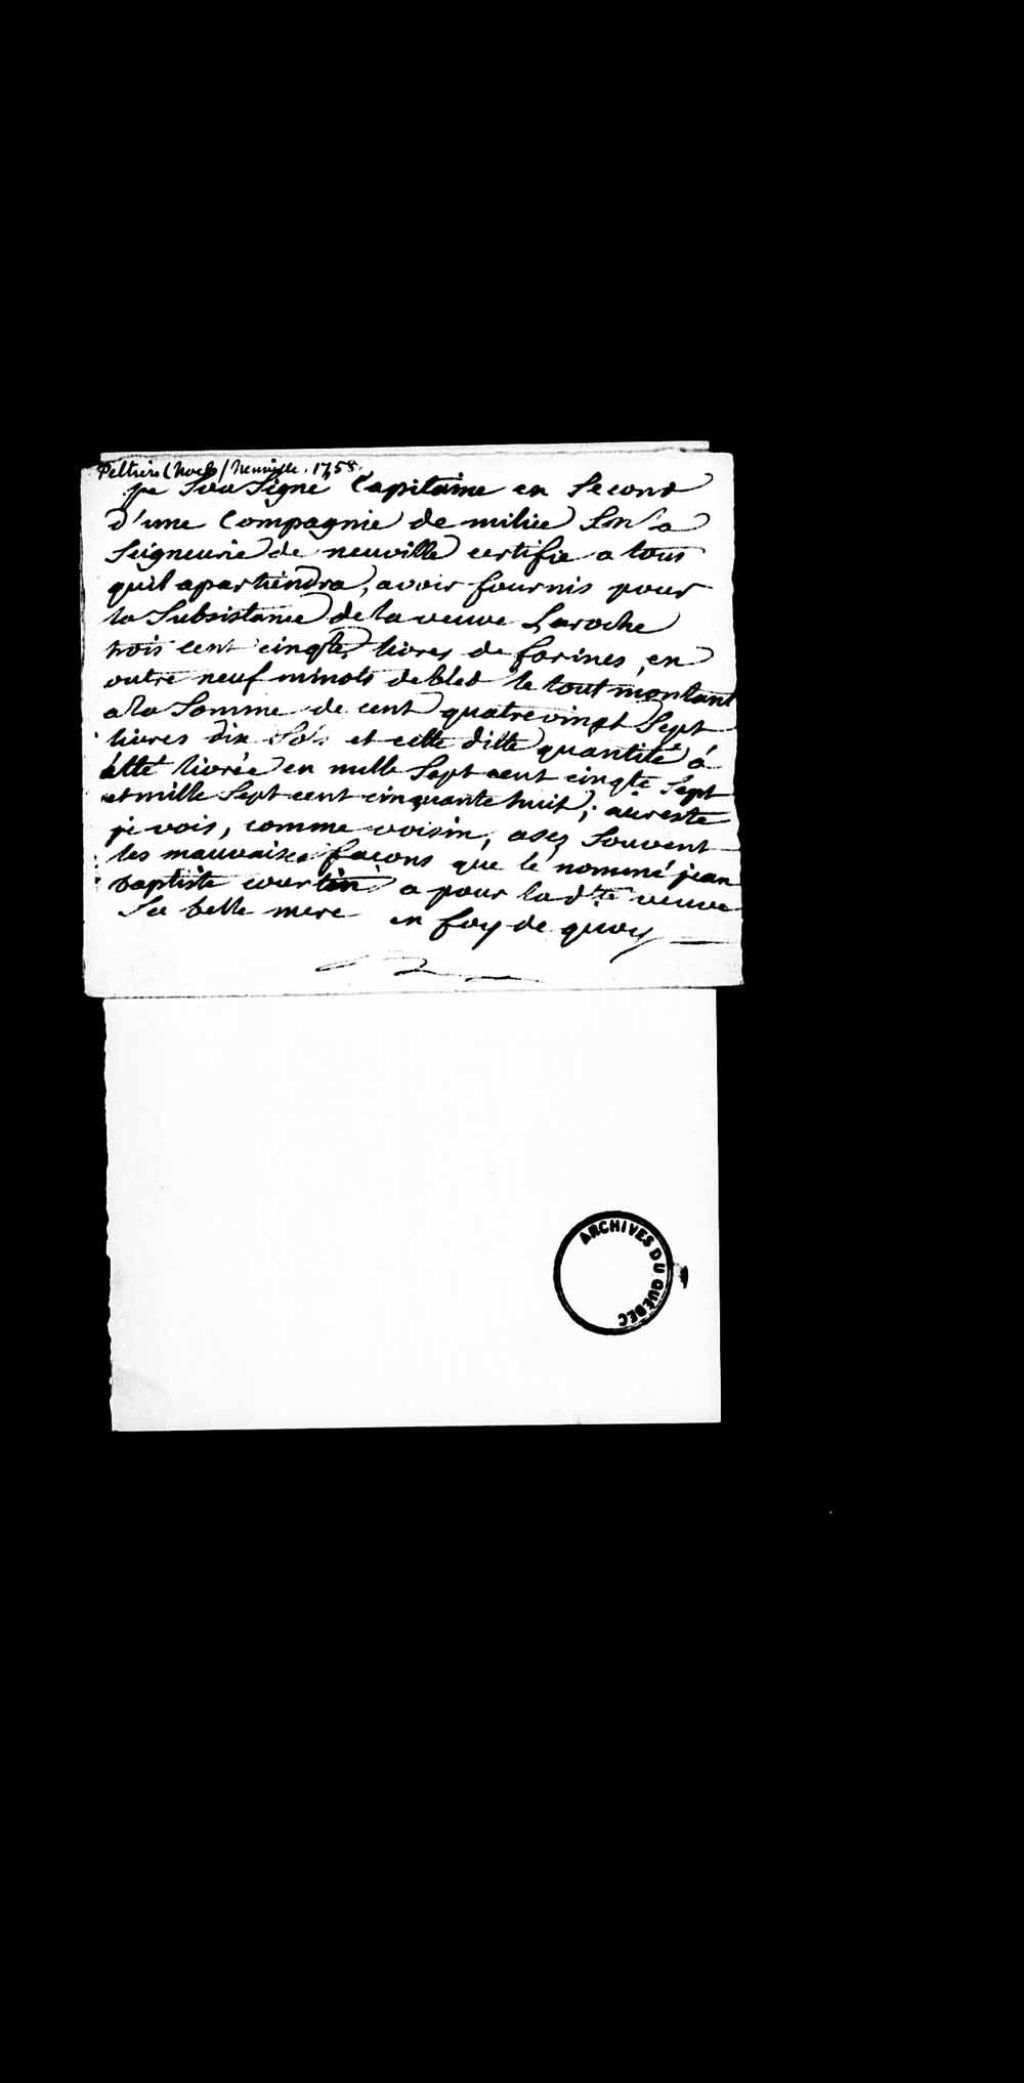 Peltier (Noel) Neuville. 1758.
je Sou Signé Capitaine en Second
d'une Compagnie de milice En la
Seigneurie de neuville certifie a tous
quil apartiendra, avoir fournis pour
la Subsistance de la veuve Laroche
trois cent cinqte livres de farines, en
outre neuf minots de bled le tout montant
a la Somme de cent quatrevingt Sept
livres dix Sols et cette ditte quantité á
étté livrée en mille Sept cent cinqte Sept
et mille Sept cent cinquante huit; aureste
je vois, comme voisin, asez Souvent
les mauvaises façons que le nommé jean
baptiste courtin a pour lad.te veuve
Sa belle mere en foy de quoy
ARCHIVES DU QUÉBEC